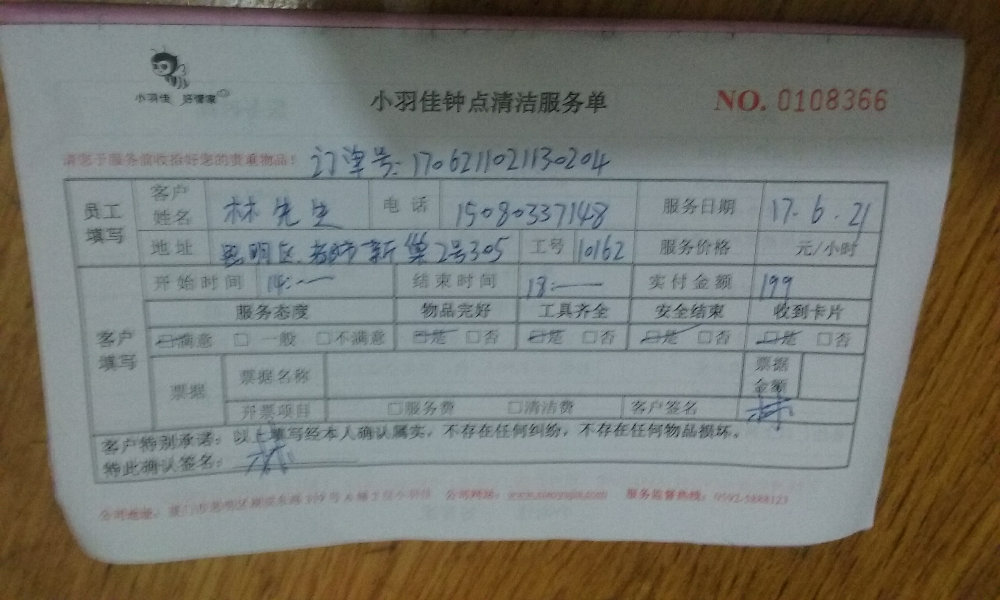 小羽佳 好管家
小羽佳钟点清洁服务单
NO. 0108366
请您于服务前收拾好您的贵重物品!
订单号:1706211021130204
员工填写
客户姓名 林先生 电话 15080337148 服务日期 17.6.21
地址 思明区 新 2号305 工号 10162 服务价格 元/小时
客户填写
开始时间 14:— 结束时间 18:— 实付金额 199
服务态度 物品完好 工具齐全 安全结束 收到卡片
☑满意 □一般 □不满意 ☑是 □否 ☑是 □否 ☑是 □否 ☑是 □否
票据 票据名称 票据金额
开票项目 □服务费 □清洁费 客户签名 林
客户特别承诺:以上填写经本人确认属实,不存在任何纠纷,不存在任何物品损坏。
特此确认签名: 林
公司地址: 公司网站: 服务监督热线: